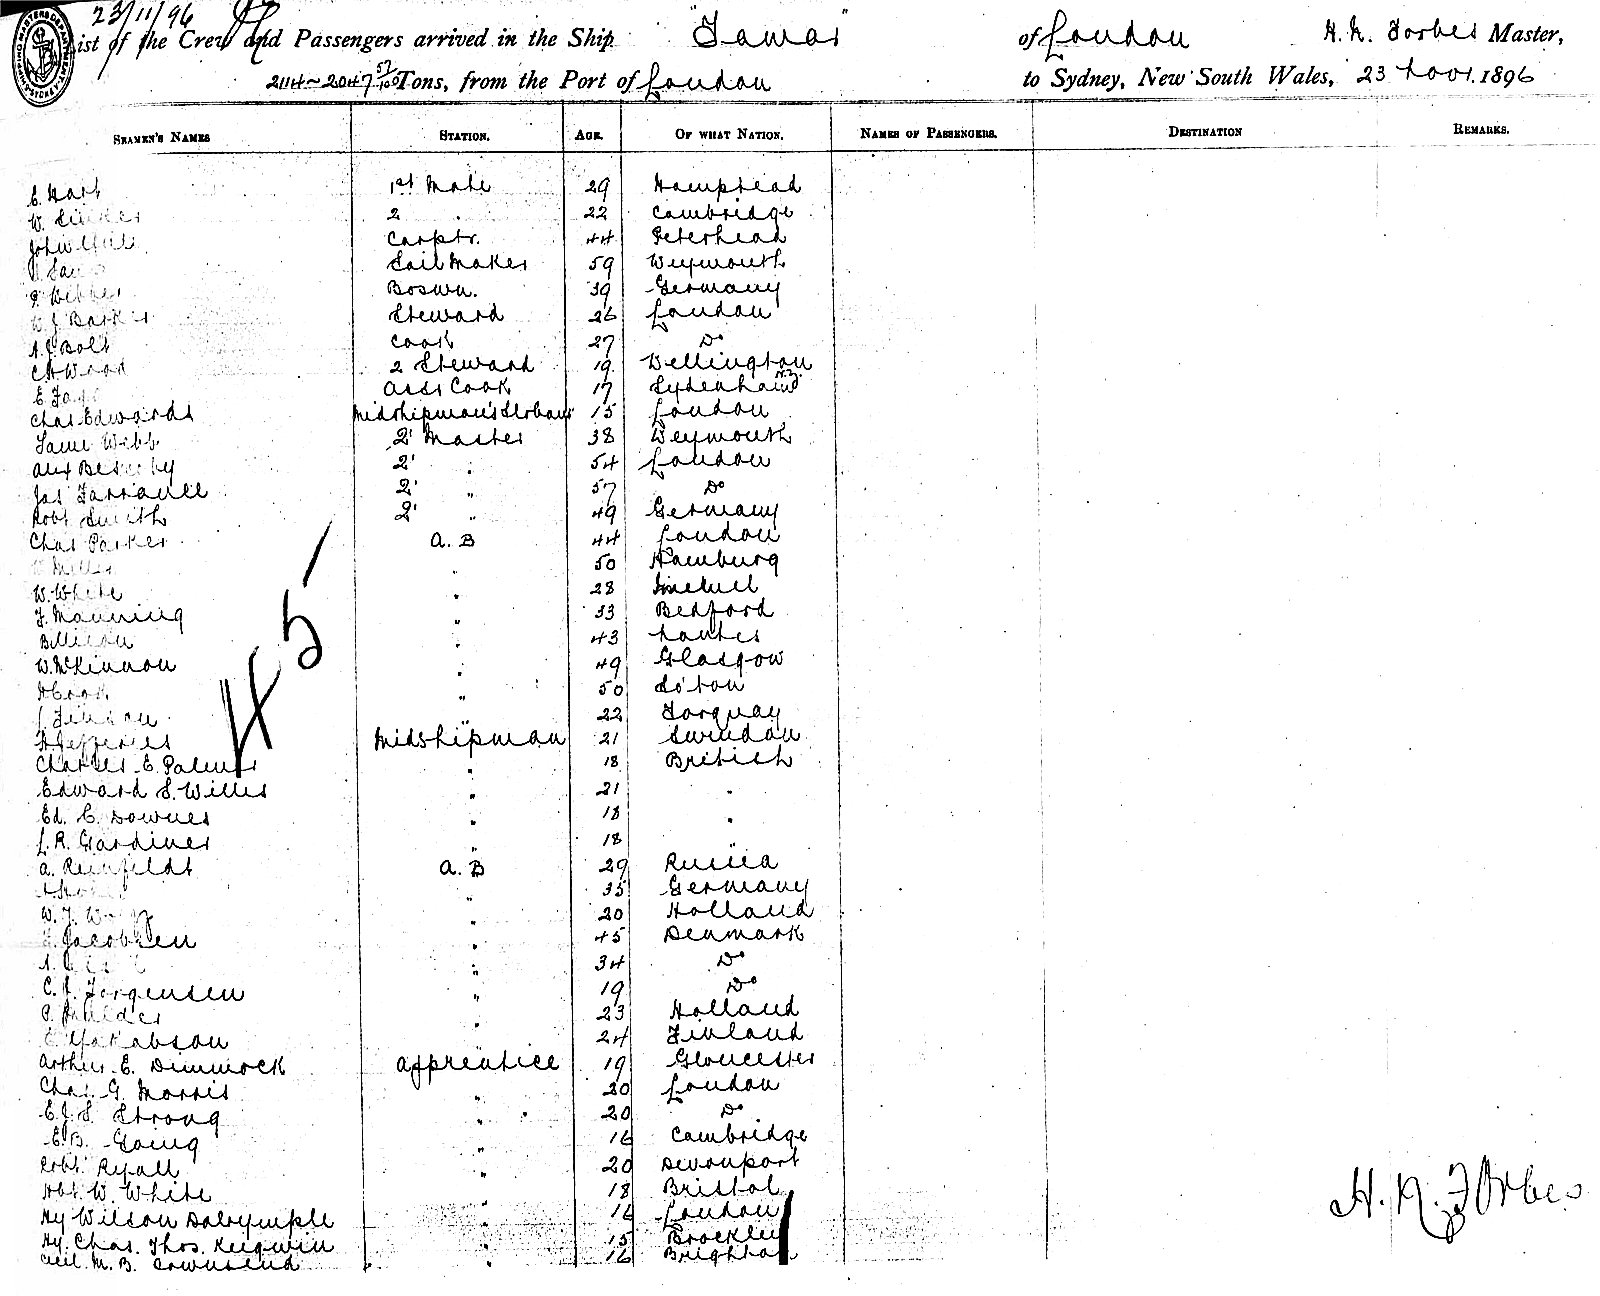 23/11/96
List of the Crew and Passengers arrived in the Ship "Tamar" of London H. N. Forbes Master,
2114 ~ 2047 57/100 Tons, from the Port of London to Sydney, New South Wales, 23 Novr. 1896
SEAMEN'S NAMES STATION. AGE. OF WHAT NATION. NAMES OF PASSENGERS. DESTINATION REMARKS.
E. Hart 1st Mate 29 Hampstead
W. 2 " 22 Cambridge
John Carptr. 44 Peterhead
Sail Maker 59 Weymouth
Webber Boswn. 39 Germany
W. J. Barker Steward 26 London
A. E. Bolt Cook 27 Do
C H Wood 2 Steward 19 Wellington N.Z.
E. Asst Cook 17 Sydenham
Chas Edwards Midshipman's Servant 15 London
Saml Webb 2r Master 38 Weymouth
Alex 2r " 54 London
Jas Farrance 2r " 57 Do
Robt Smith 2r " 49 Germany
Chas Parker A. B 44 London
Miller " 50 Hamburg
W. White " 28
F. Manning " 33 Bedford
" 43 Nantes
W. McKinnon " 49 Glasgow
H Cook " 50 So'ton
" 22 Torquay
H Jefferies " 21 Swindon
Charles E. Palmer Midshipman 18 British
Edward S. Willis " 21 "
Ed. C. Downes " 18 "
L. R. Gardiner " 18
A. Reinfeldt A. B 29 Russia
" 35 Germany
W. J. " 20 Holland
Jacobsen " 45 Denmark
" 34 Do
C. J. Jorgensen " 19 Do
P. Mulder " 23 Holland
Yakabson " 24 Finland
Arthur E. Dimmock Apprentice 19 Gloucester
Chas. G. Morris " 20 London
E. J. S. Strong " 20 Do
E. B. Going " 16 Cambridge
Robt Ryall " 20 Devonport
Hbt. W. White " 18 Bristol
Hy Wilson Dalrymple " 16 London
Hy. Chas. Thos. Keigwin " 15 Brockley
Cecil M. B. Townsend " 16 Brighton
45
H. N. Forbes